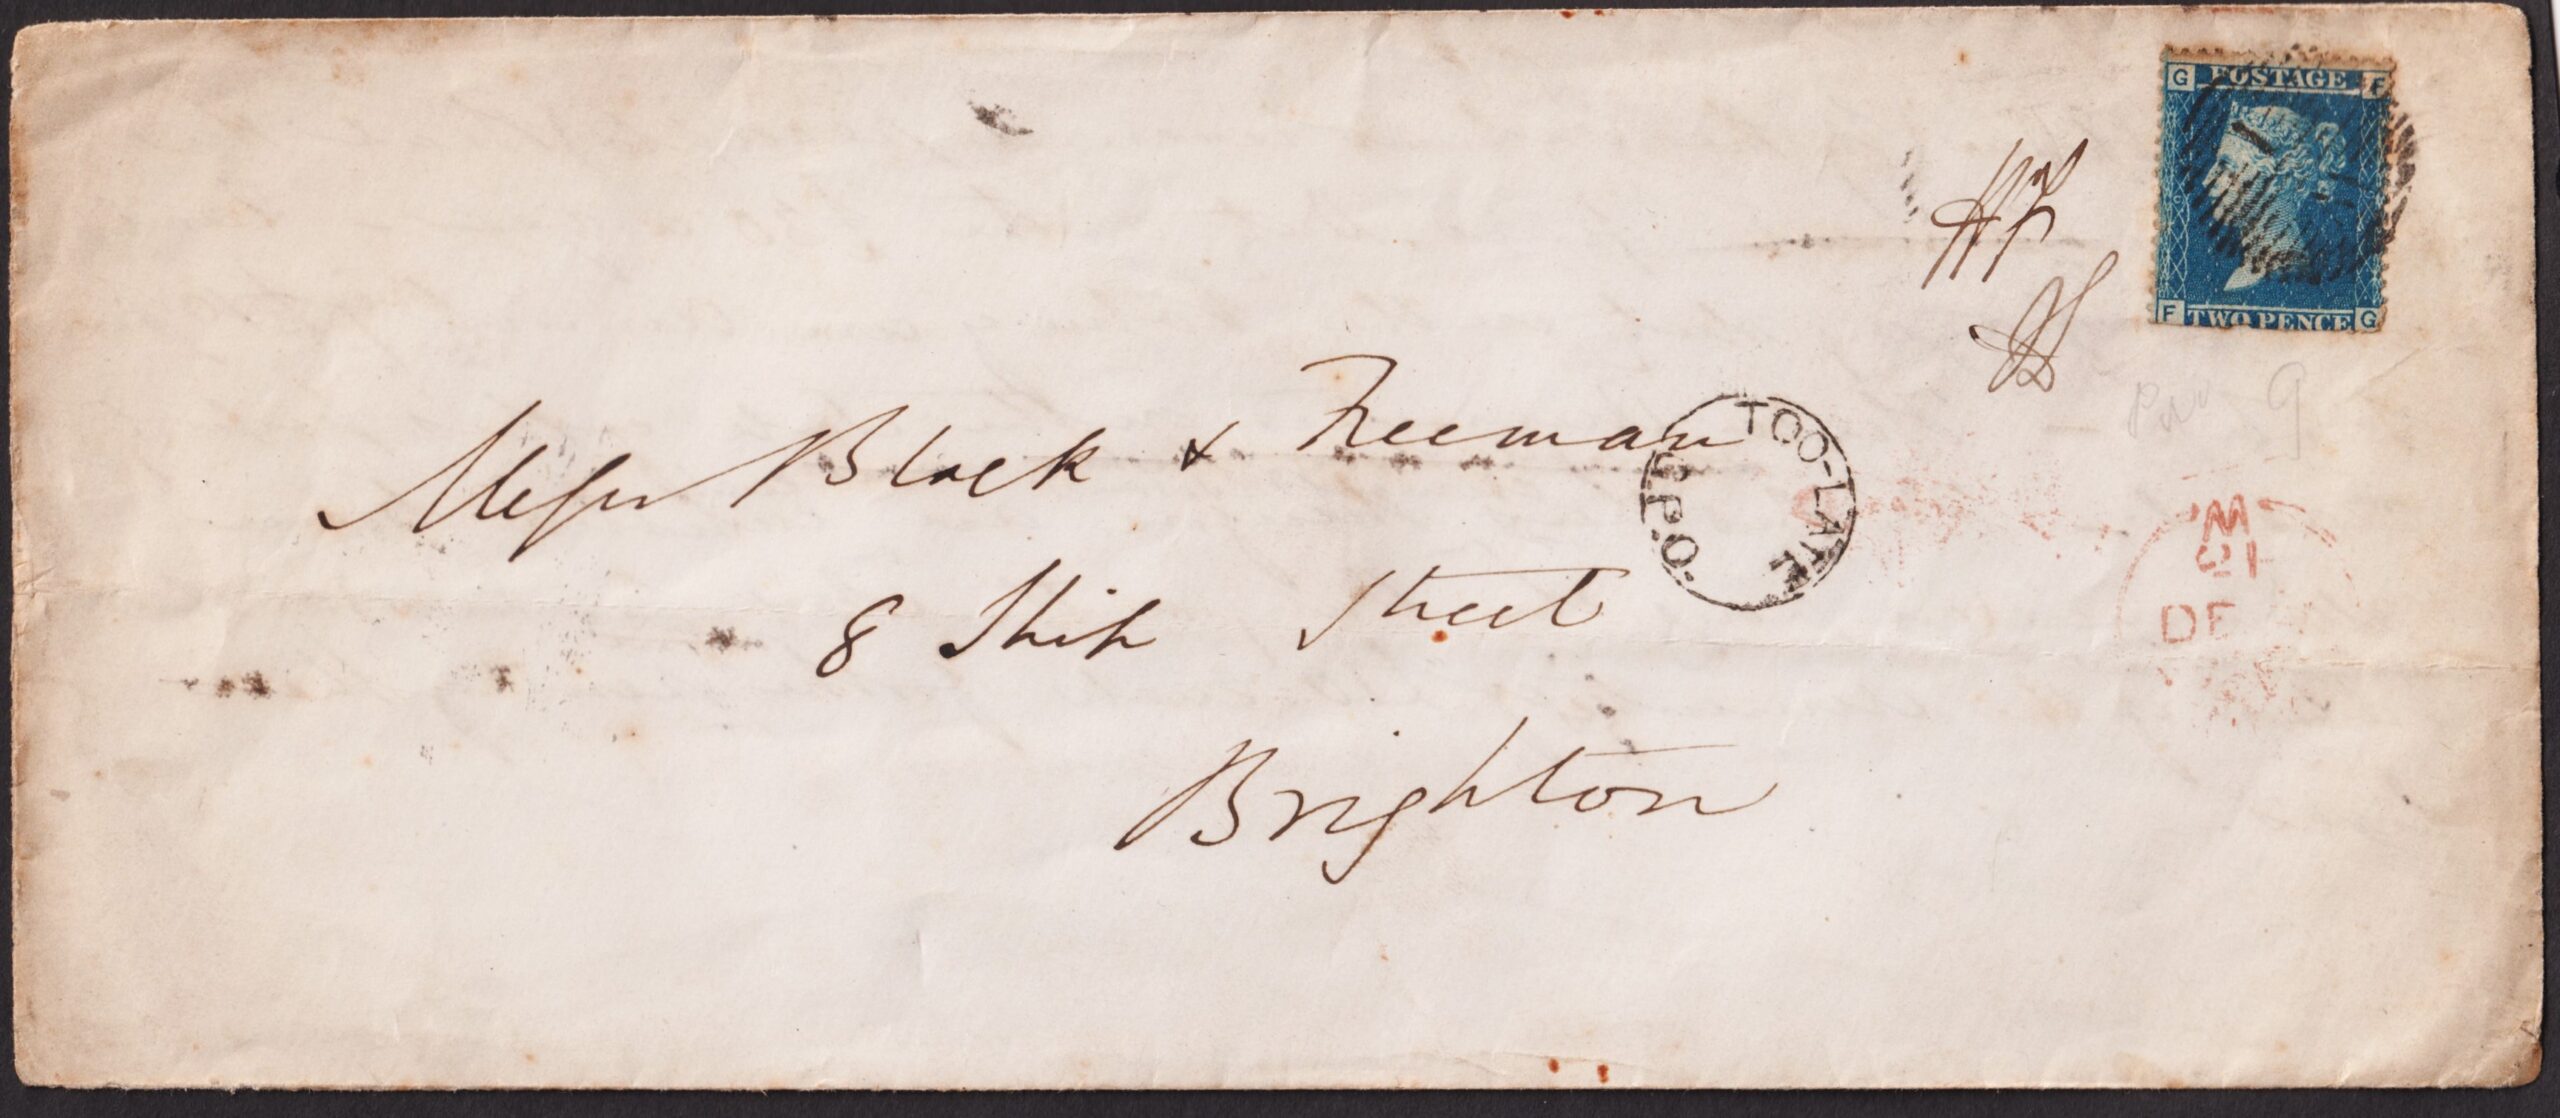 G POSTAGE F
F TWO PENCE G
Messrs Black & Freeman
TOO-LATE
G.P.O.
8 Ship Street
Brighton
W
21
DE
9